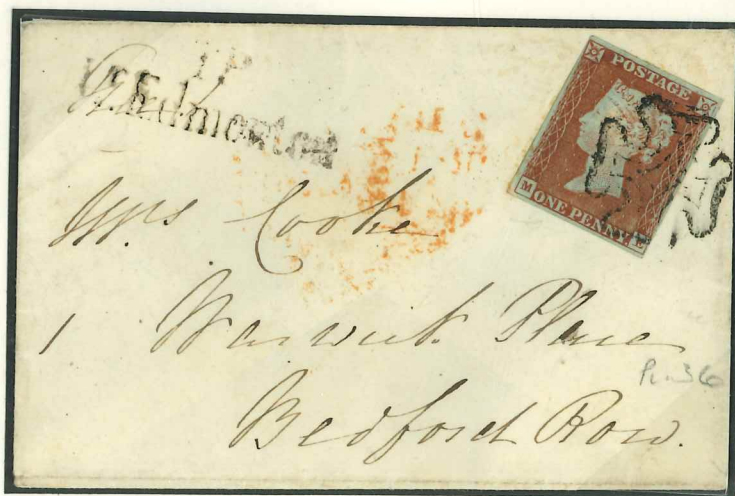 T.P
Edmonton
Paid
POSTAGE
ONE PENNY
M E
Mrs Cooke
1 Warwick Place
Bedford Row.